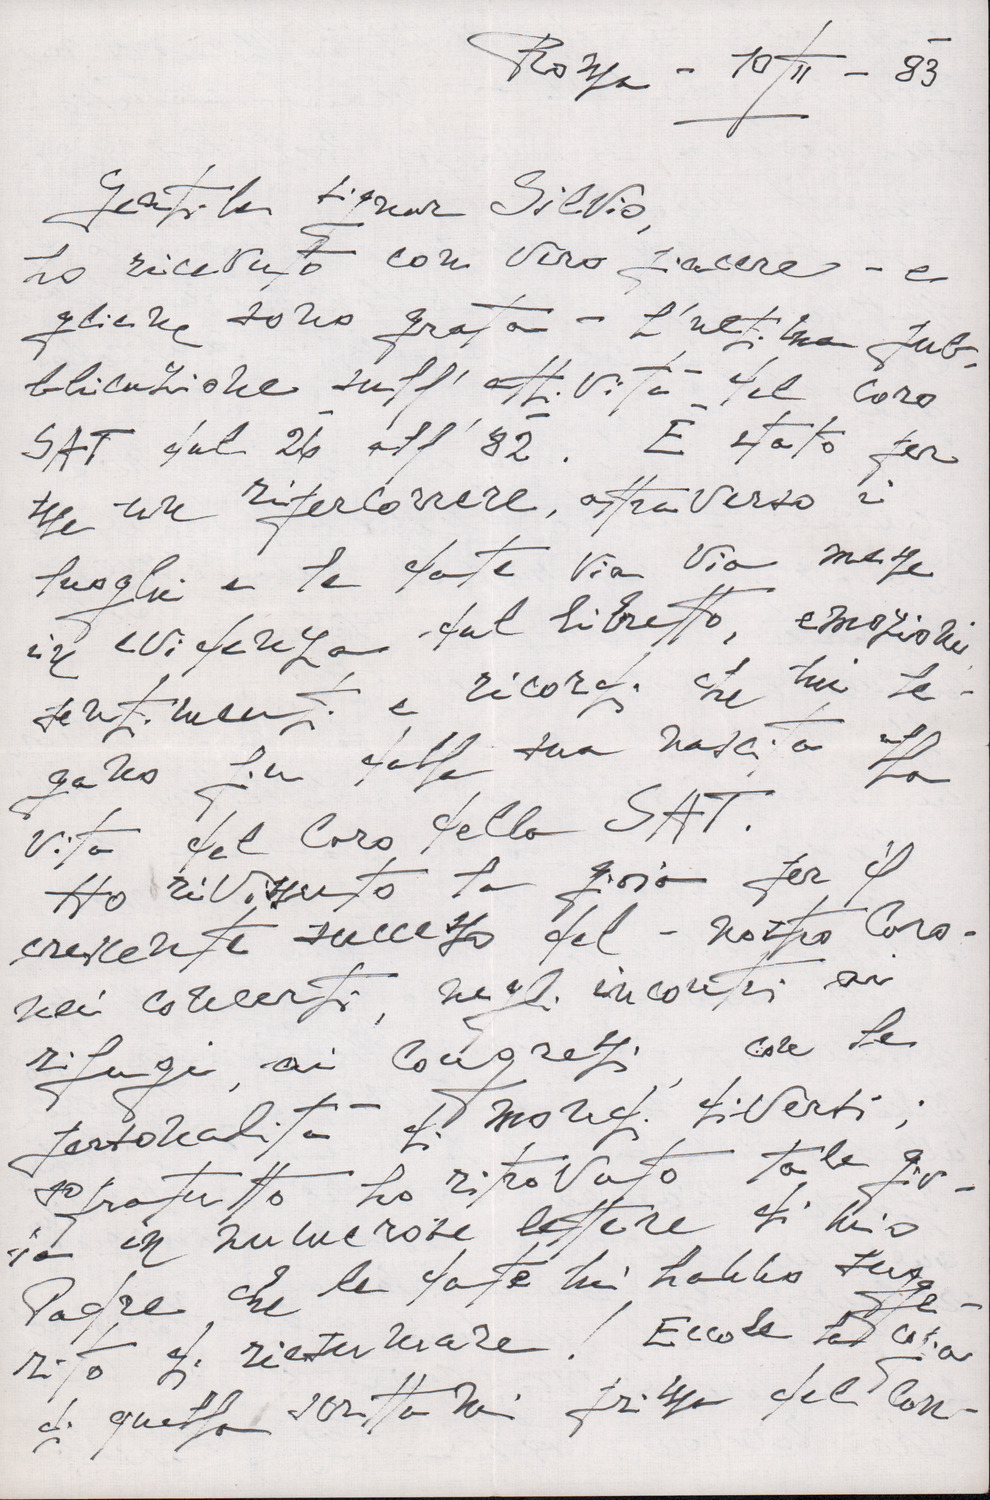 Roma - 10/II - 83
Gentile signor Silvio,
ho ricevuto con vero piacere - e
gliene sono grata - l'ultima pub-
blicazione sull'attività del coro
SAT dal 26 all'82. È stato per
me un ripercorrere, attraverso i
luoghi e le date via via messe
in evidenza dal libretto, emozioni,
sentimenti e ricordi che mi le-
gano fin dalla sua nascita alla
vita del Coro della SAT.
Ho rivissuto la gioia per il
crescente successo del - nostro Coro -
nei concerti, negli incontri ai
rifugi, ai Congressi, con le
personalità di mondi diversi;
sopratutto ho ritrovato tale gio-
ia in numerose lettere di mio
Padre che le date mi hanno sugge-
rito di riesumare! Eccole la copia
di quella scrittami prima del Con-